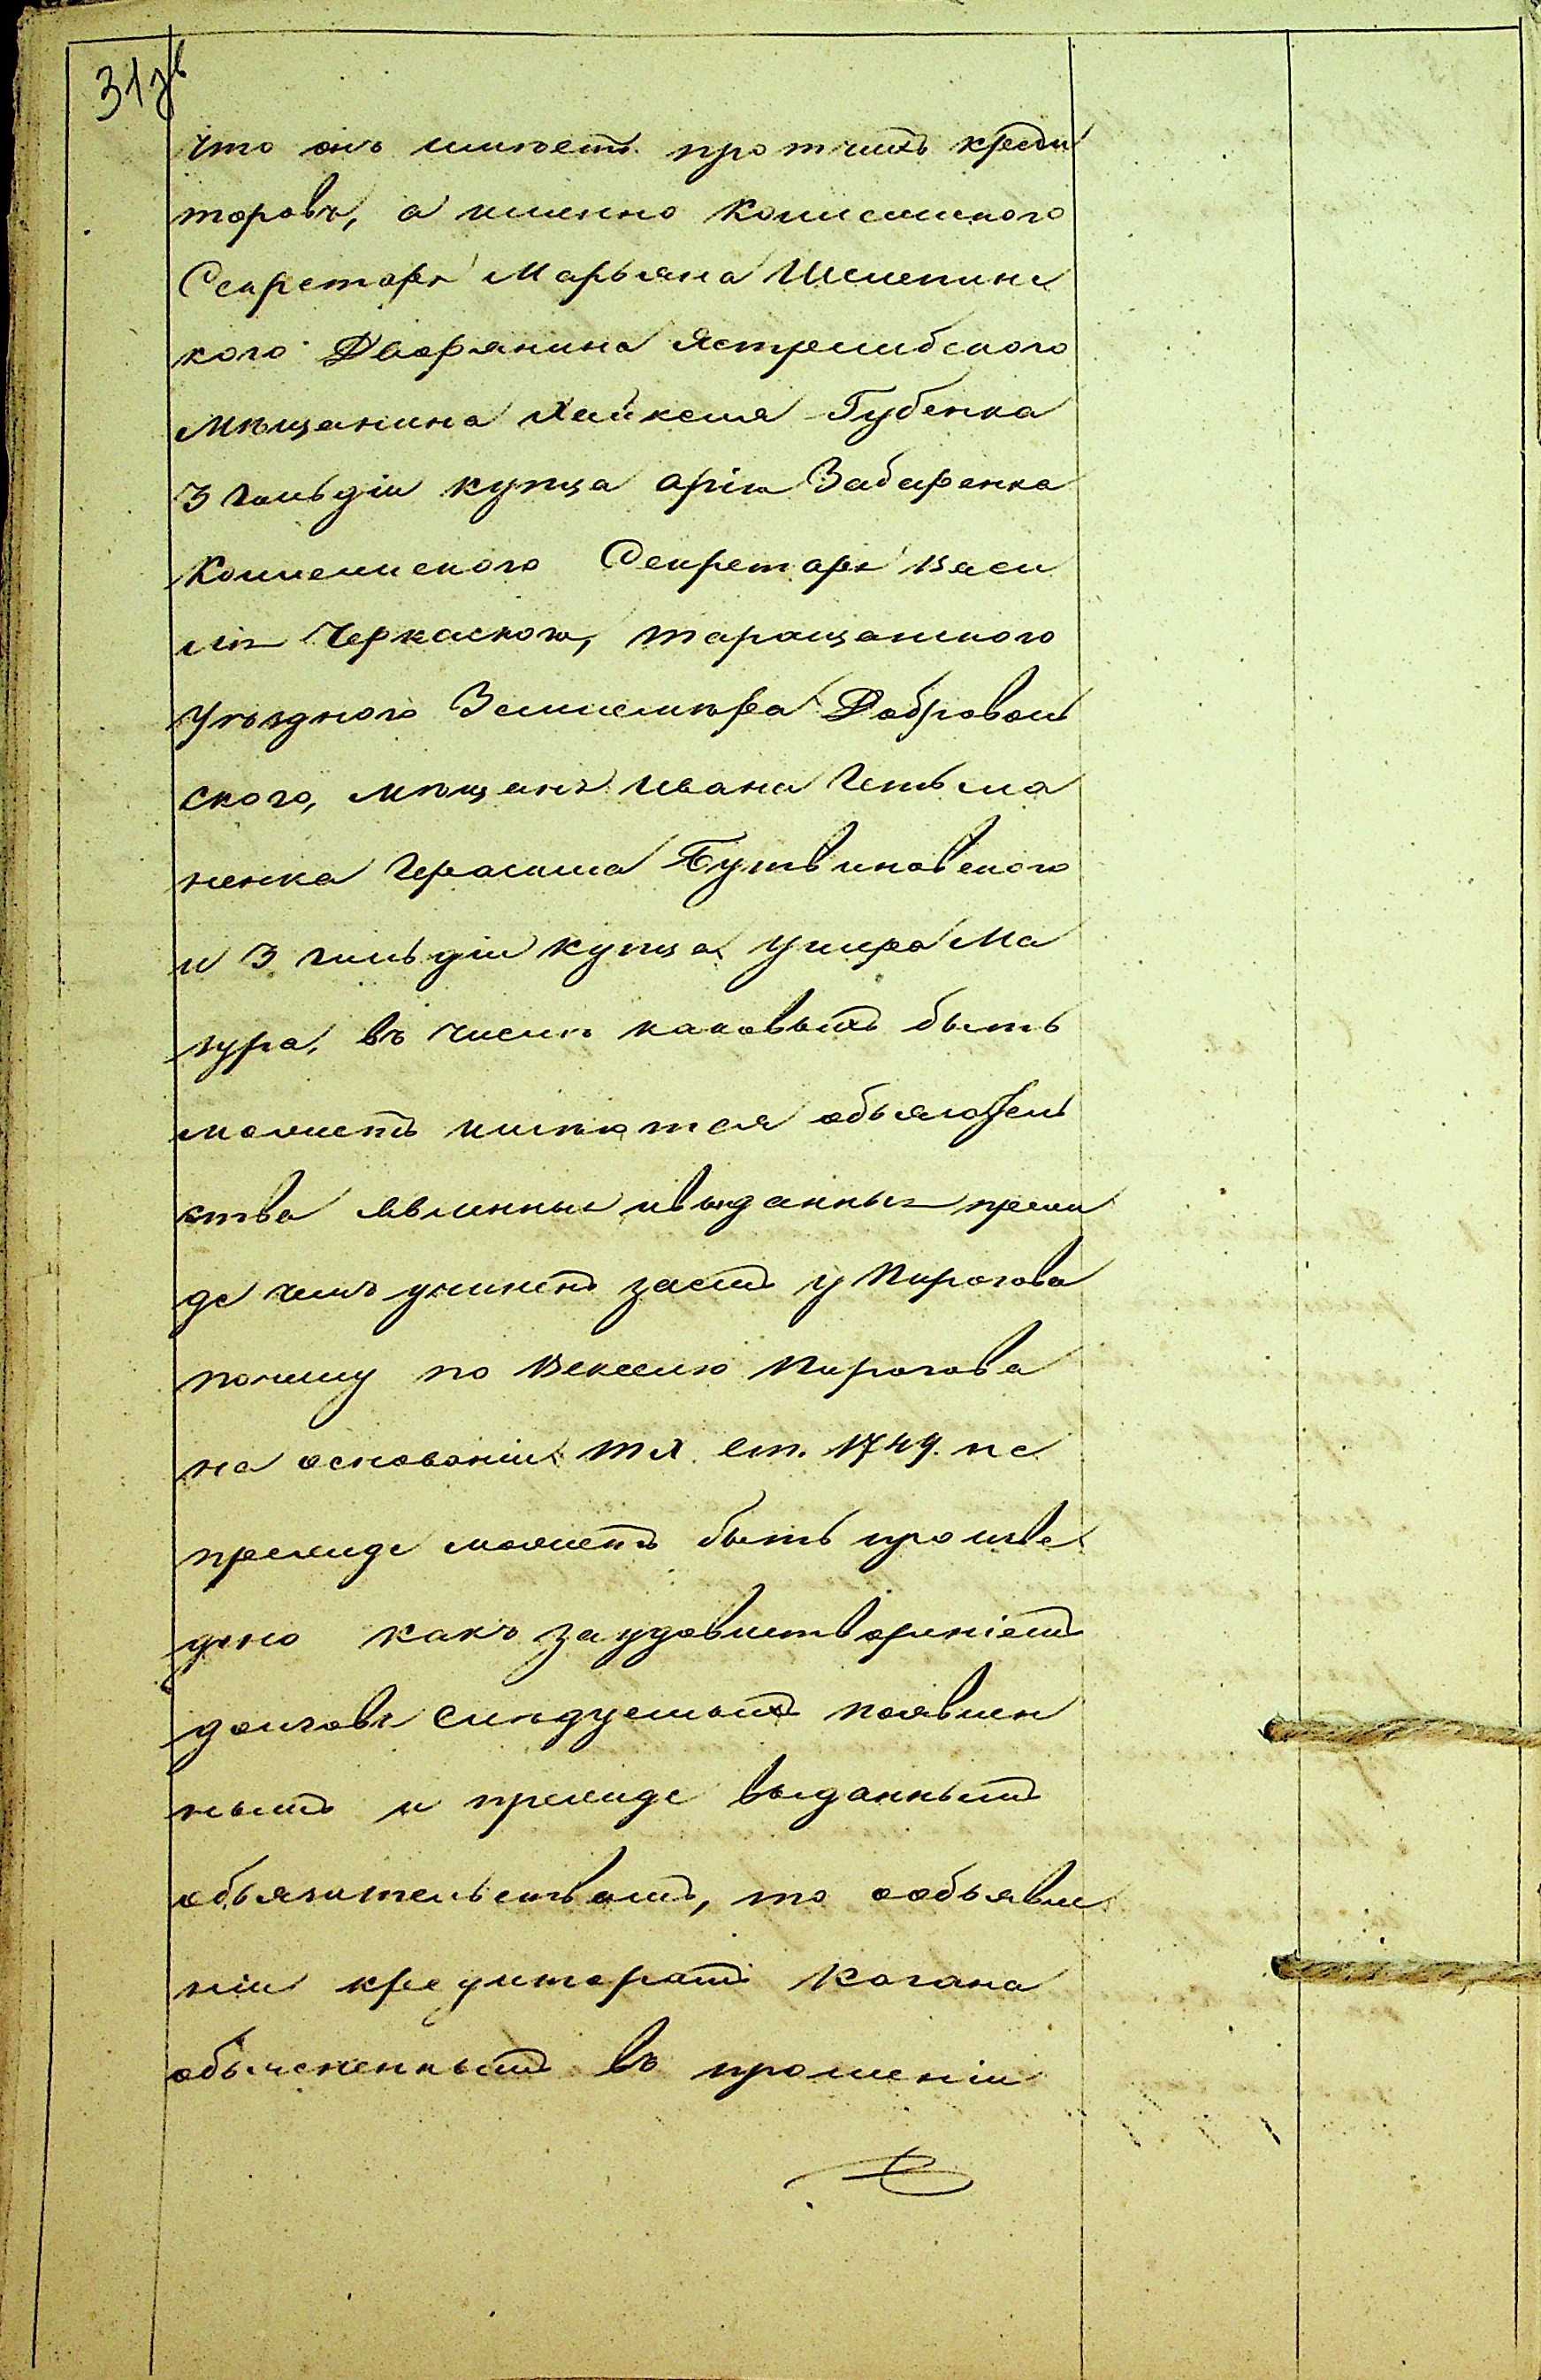 31зв
что онъ имѣетъ протчихъ креди
торовъ, а именно Колежского
Секретаря Марьяна
кого Дворянина Ястрембского
мѣщанина Хаикеля Губенка
3 гильдіи купца Арія Забаренка
Колежского Секретаря Васи
лія Черкаского, таращанского
Уѣзднаго Землемѣра Добровол
ского, мѣщанъ Ивана Гетьма
ненка Герасима Бутвиновского
и 3 гильдіи купца Умера Ма
зура, въ числѣ каковыхъ быть
можетъ имѣются
ства явленные и выданные преж
де чемъ учинен заемъ у Пирогова
почему по Векселю Пирогова
на основаніи Т Х. ст. 1749. не
прежде можетъ быть произве
дено какъ за удовлетвореніемъ
долговъ слѣдуемыхъ по явлен
нымъ и прежде выданнымъ
обьязательствамъ, то о объявле
ніи кредиторамъ Когана
обьясненнымъ въ прошеніи